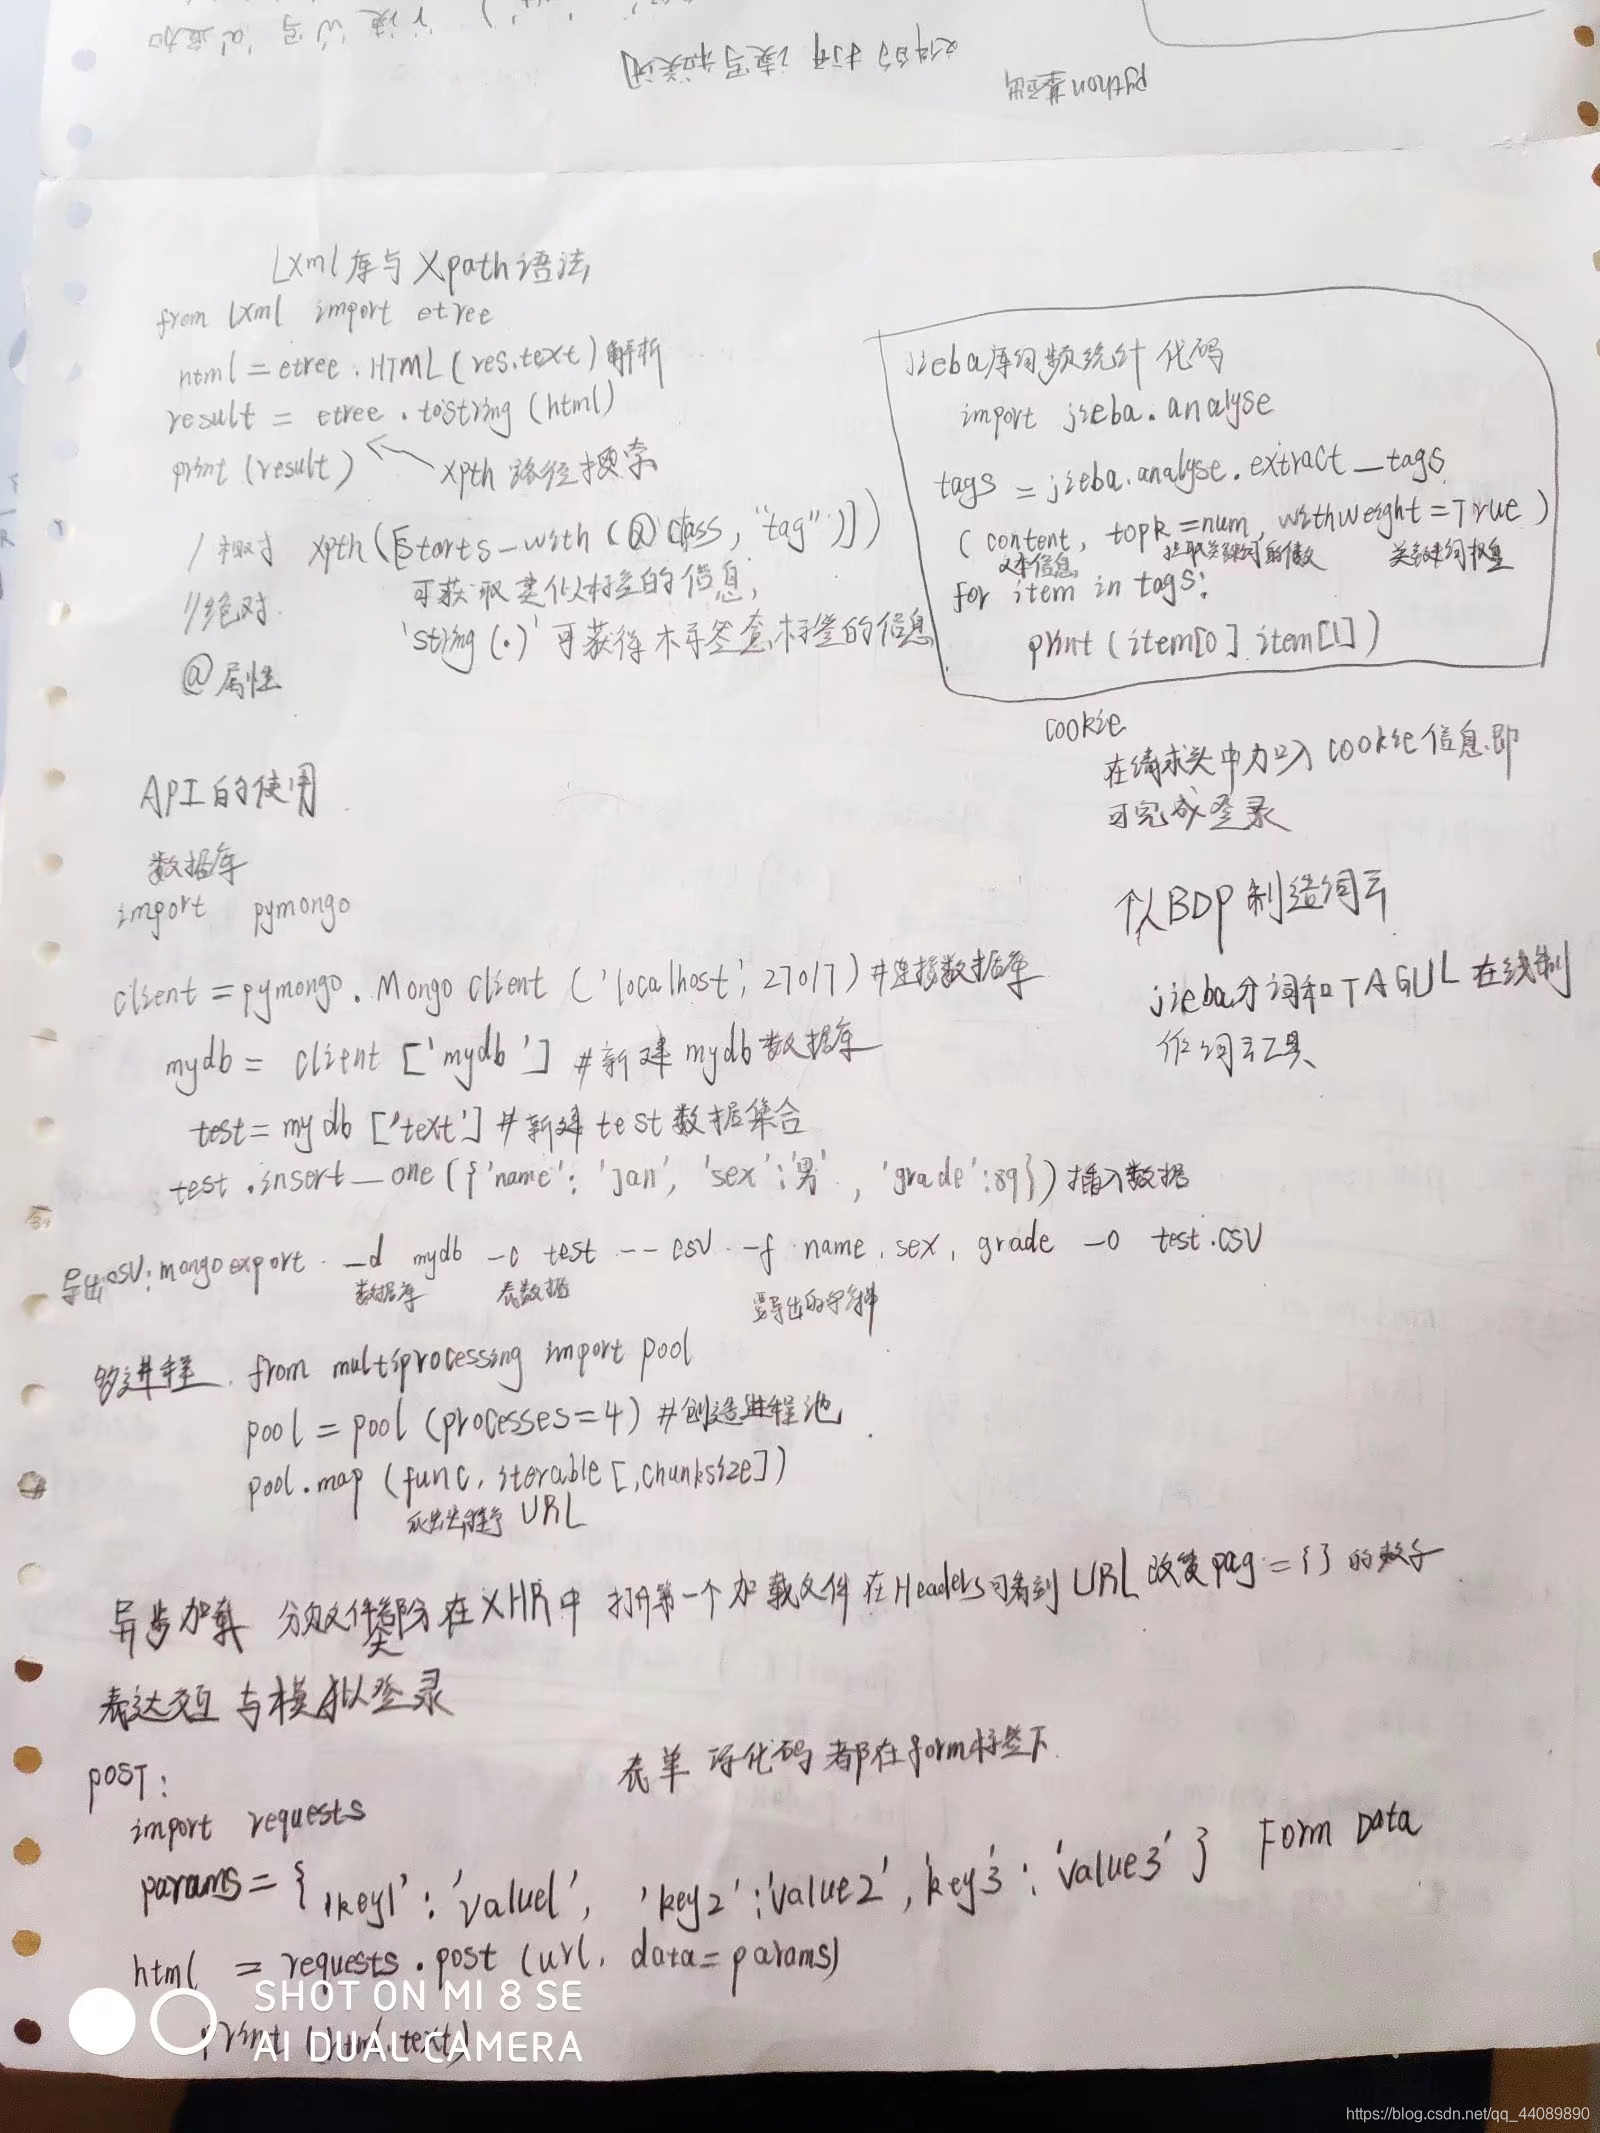 python基础
文件的打开 读写和关闭
r读 w写 a追加
Lxml库与Xpath语法
from lxml import etree
html = etree.HTML(res.text) 解析
result = etree.tostring(html)
print(result)
xpth 路径搜索
/ 相对 xpth([starts_with(@class,"tag")])
可获取类似标签的信息,
//绝对
'string(.)'可获得标签套标签的信息
@属性
jieba库词频统计代码
import jieba.analyse
tags = jieba.analyse.extract_tags
(content, topk=num, withweight=True)
文本信息 提取关键词的个数 关键词权重
for item in tags:
print(item[0] item[1])
cookie
在请求头中加入cookie信息即
可完成登录
个人BDP制造词云
jieba分词和TAGUL在线制
作词云工具
API的使用
数据库
import pymongo
client = pymongo.MongoClient('localhost', 27017) #连接数据库
mydb = client['mydb'] #新建mydb数据库
test = mydb['text'] #新建test数据集合
test.insert_one({'name': 'Jan', 'sex':'男', 'grade':89}) 插入数据
导出csv: mongoexport -d mydb -c test --csv -f name, sex, grade -o test.csv
数据库 表数据 要导出的字段
多进程 from multiprocessing import pool
pool = pool(processes=4) #创造进程池
pool.map(func, iterable[,chunksize])
爬虫程序 URL
异步加载 在XHR中 打开第一个加载文件 在Headers可看到URL 改变pag={}的数字
表达交互与模拟登录
表单 源代码 都在form标签下
POST:
import requests
params = {'key1':'value1', 'key2':'value2','key3':'value3'} Form Data
html = requests.post(url, data=params)
print(html.text)
SHOT ON MI 8 SE
AI DUAL CAMERA
https://blog.csdn.net/qq_44089890